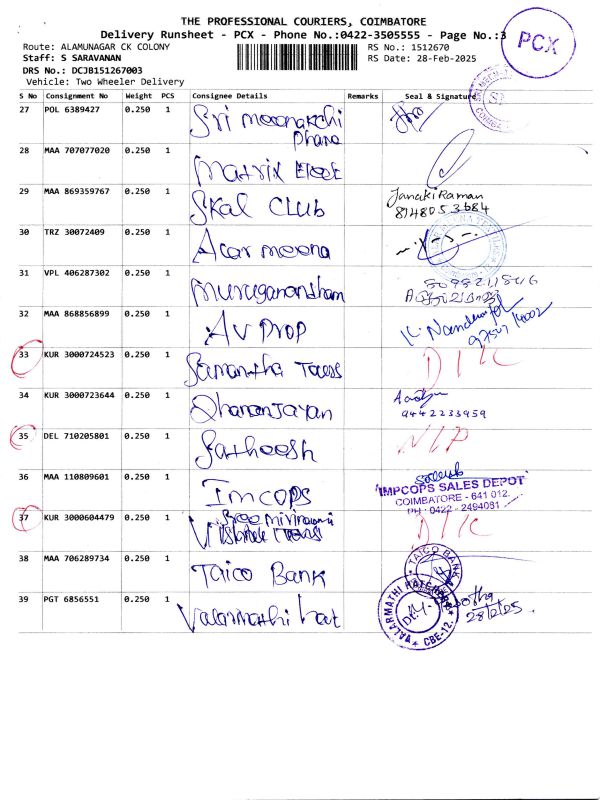 THE PROFESSIONAL COURIERS, COIMBATORE
Delivery Runsheet - PCX - Phone No.:0422-3505555 - Page No.:3
PCX
Route: ALAMUNAGAR CK COLONY
RS No.: 1512670
Staff: S SARAVANAN
RS Date: 28-Feb-2025
DRS No.: DCJB151267003
Vehicle: Two Wheeler Delivery
S No Consignment No Weight PCS Consignee Details Remarks Seal & Signature
27 POL 6389427 0.250 1 Sri Meenakshi
28 MAA 707077020 0.250 1 Matrix
29 MAA 869359767 0.250 1 Skal CLUB Janaki Raman
8148053684
30 TRZ 30072409 0.250 1 Acar meena
31 VPL 406287302 0.250 1 Muruganandham
32 MAA 868856899 0.250 1 AV PROP
33 KUR 3000724523 0.250 1 Samantha
34 KUR 3000723644 0.250 1 Dhananjayan
9442233959
35 DEL 710205801 0.250 1 Sathoosh
36 MAA 110809601 0.250 1 Imcops
IMPCOPS SALES DEPOT
COIMBATORE - 641 012.
PH : 0422 - 2494081
37 KUR 3000604479 0.250 1
38 MAA 706289734 0.250 1 Taico Bank TAICO BANK
39 PGT 6856551 0.250 1 Valarmathi
VALARMATHI
CBE-12.
28/2/25.